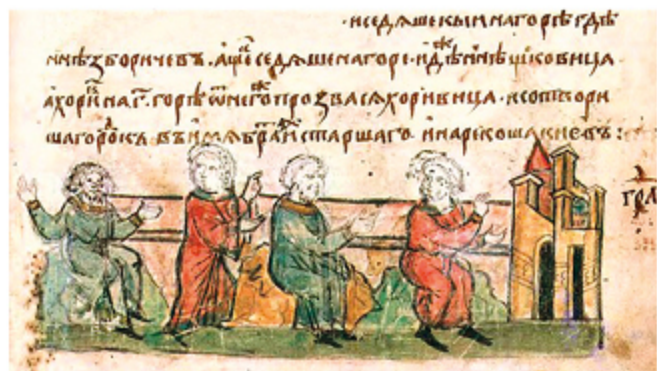 · и седяше кыи на горѣ гдѣ
нн҃ѣ зборичевъ · а щекъ седяше на горе · идѣже нн҃ѣ щековица
а хорив на г҃ горѣ ѿ негоже прозвася хоривица · и сотвори
ша городок въ имя брата ст҃аршаго и нарекоша киевъ :
гра